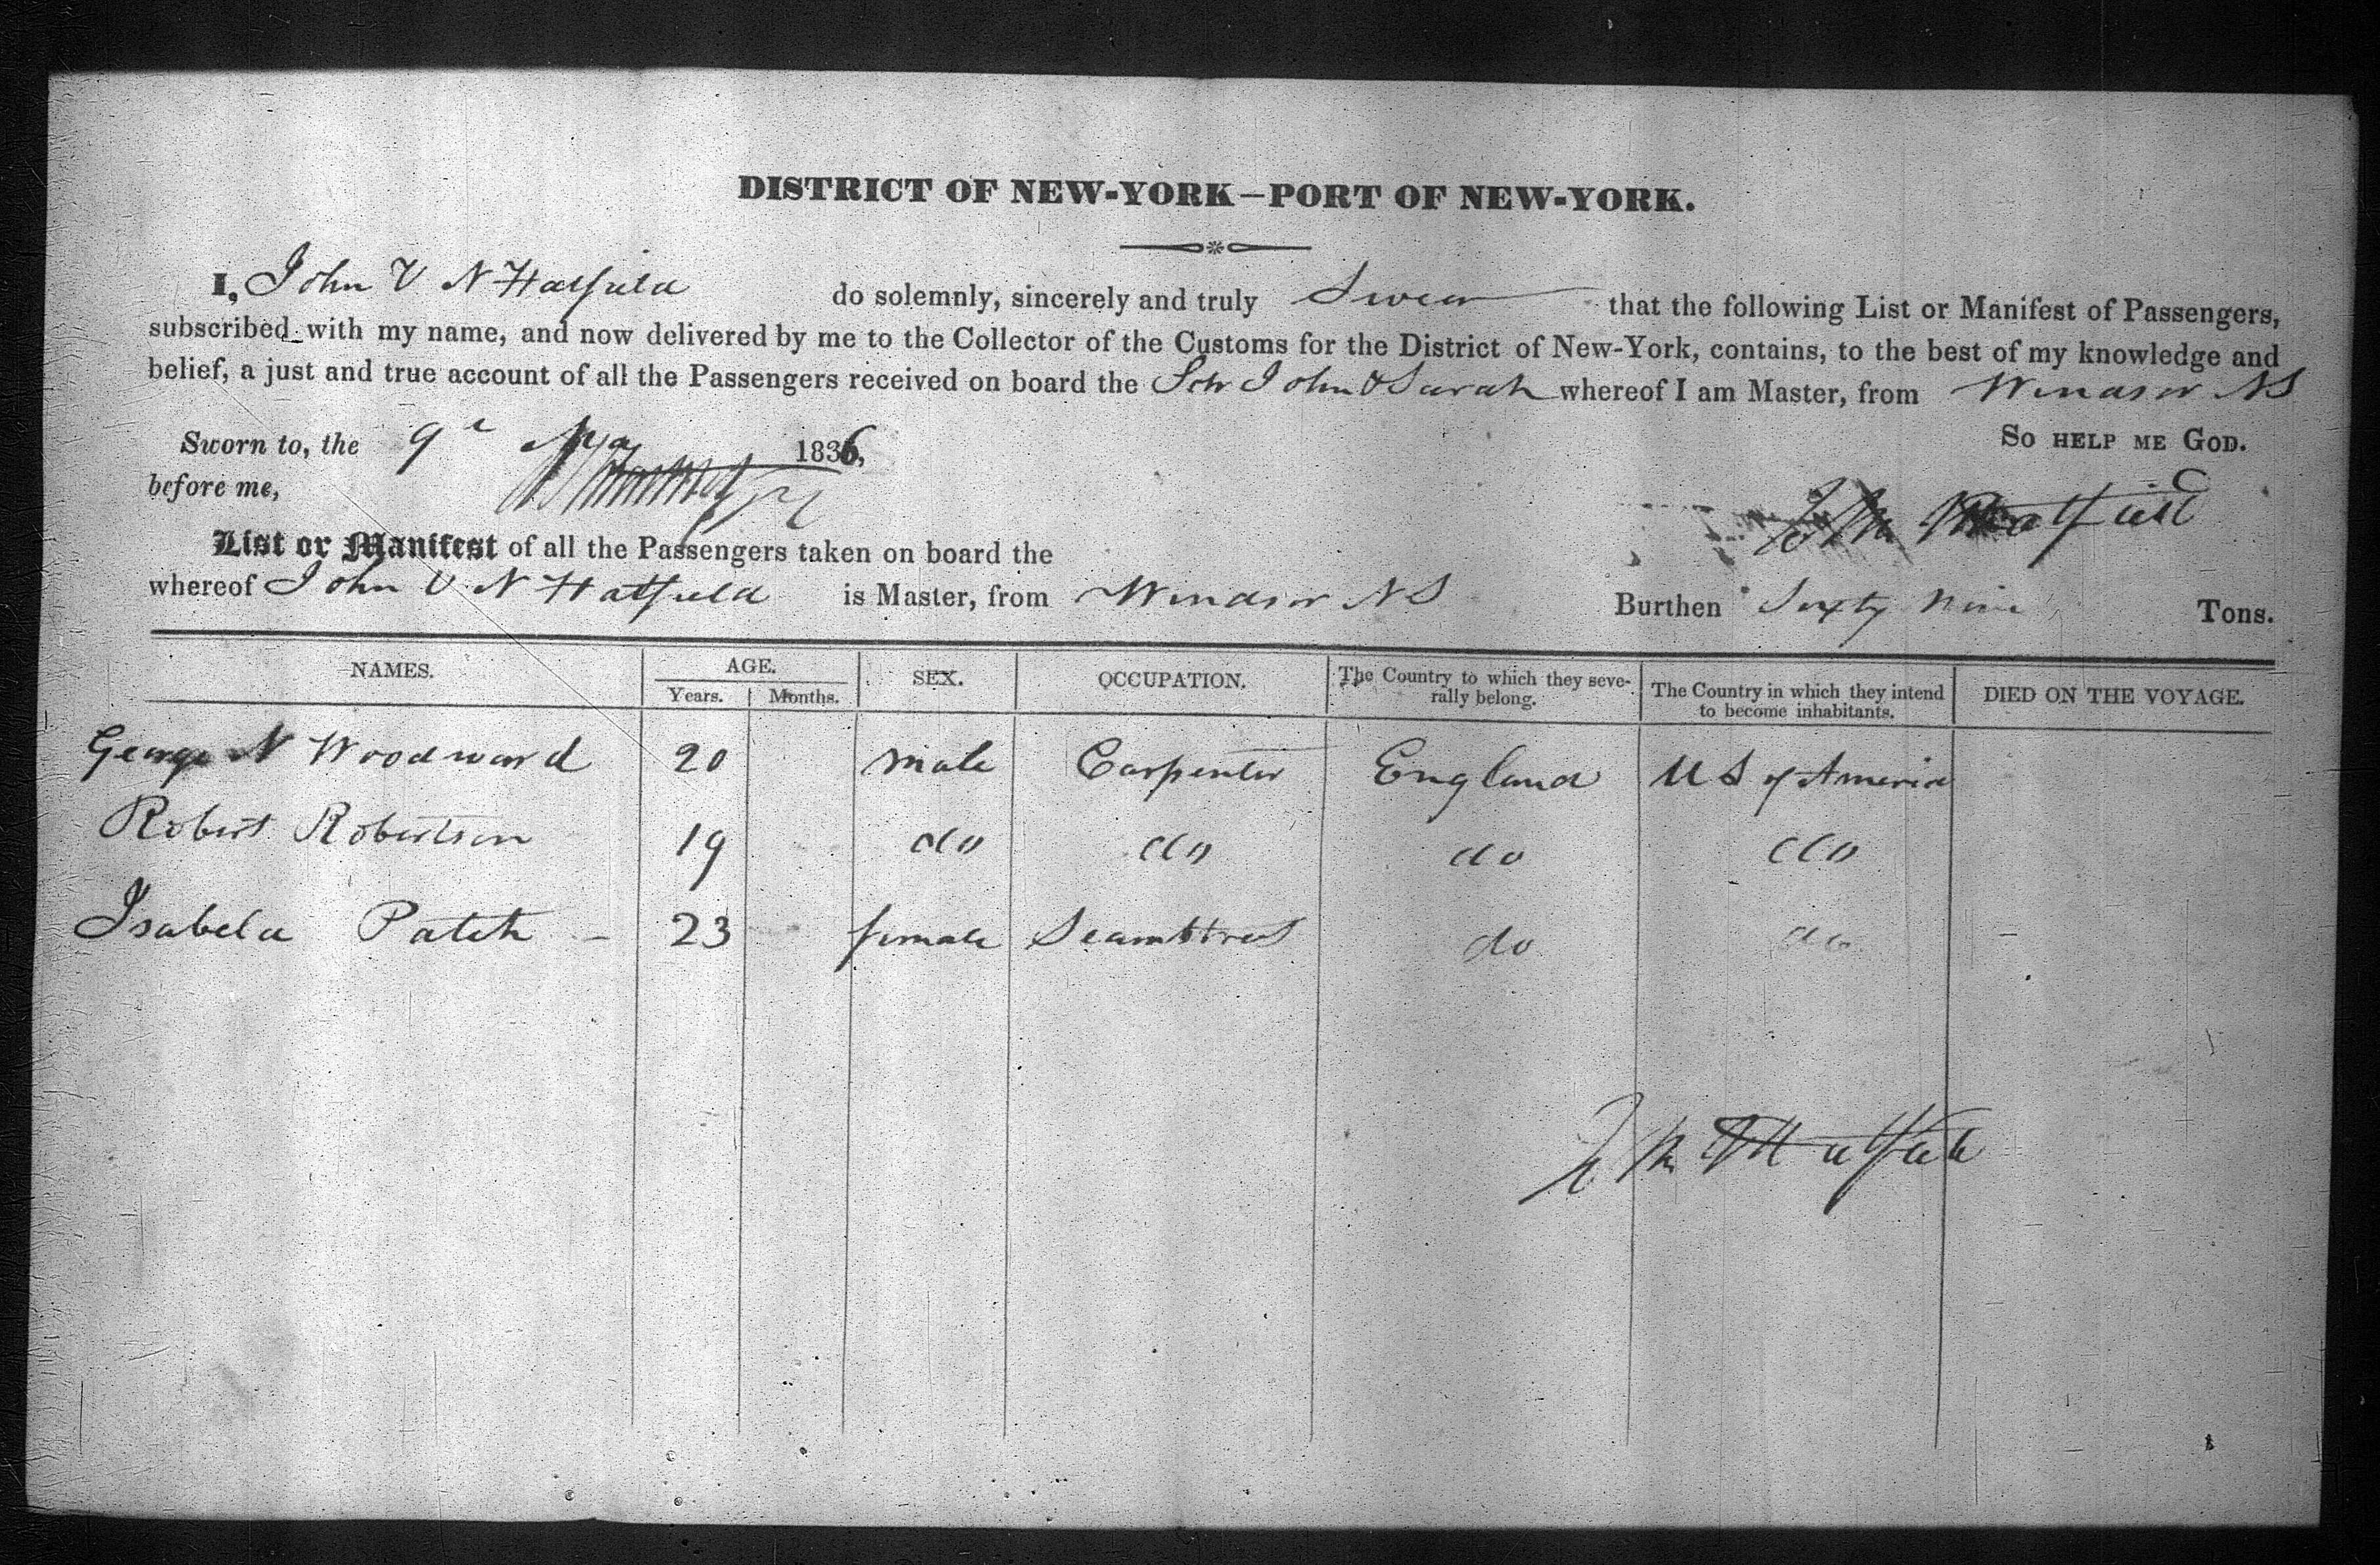 DISTRICT OF NEW-YORK—PORT OF NEW-YORK.
I, John V N Hatfield do solemnly, sincerely and truly Swear that the following List or Manifest of Passengers,
subscribed with my name, and now delivered by me to the Collector of the Customs for the District of New-York, contains, to the best of my knowledge and
belief, a just and true account of all the Passengers received on board the Schr John & Sarah whereof I am Master, from Windsor NS
Sworn to, the 9th May 1836, So help me God.
before me,
John V Hatfield
List or Manifest of all the Passengers taken on board the
whereof John V N Hatfield is Master, from Windsor NS Burthen Sixty Nine Tons.
NAMES. AGE. SEX. OCCUPATION. The Country to which they seve- rally belong. The Country in which they intend to become inhabitants. DIED ON THE VOYAGE.
Years. Months.
George N Woodward 20 male Carpenter England US of America
Robert Robertson 19 do do do do
Isabela Patch 23 female Seamstress do do
John V Hatfield